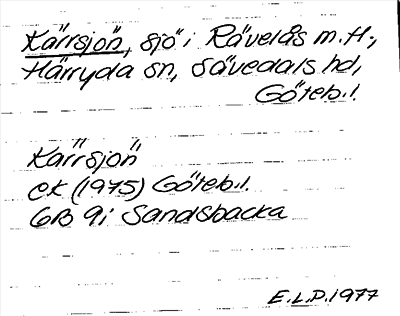 Kärrsjön, sjö i Rävelås m.fl.,
Härryda sn, Sävedals hd,
Göteb.l.
Kärrsjön
EK (1975) Göteb.l.
6B 9i Sandsbacka
E.L.P.1977